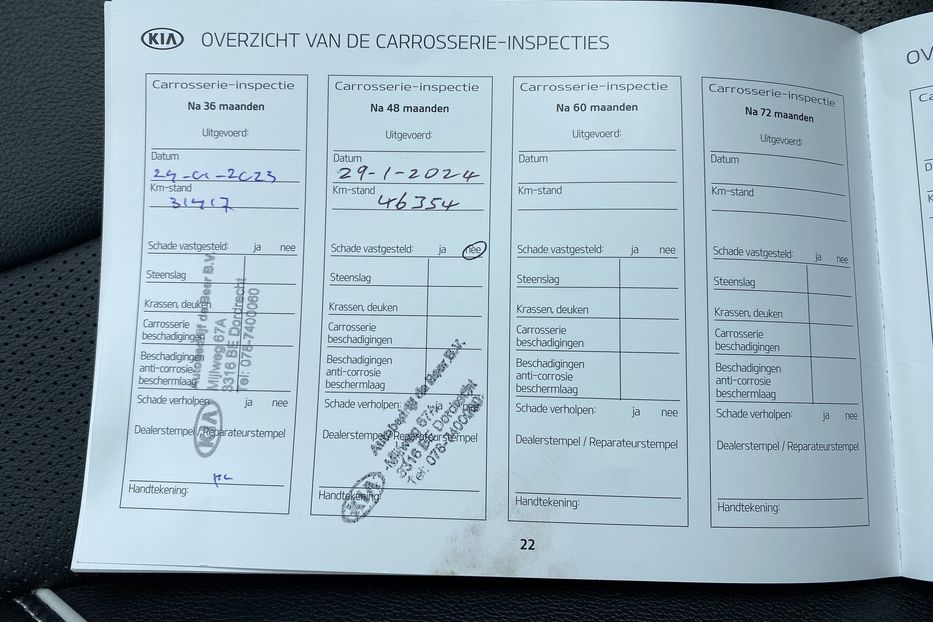 KIA OVERZICHT VAN DE CARROSSERIE-INSPECTIES
Carrosserie-inspectie
Na 36 maanden
Uitgevoerd:
Datum
Km-stand
31417
Schade vastgesteld: ja nee
Steenslag
Krassen, deuken
Carrosserie
beschadigingen
Beschadigingen
anti-corrosie
beschermlaag
Schade verholpen: ja nee
Dealerstempel / Reparateurstempel
Handtekening:
KIA
Autobedrijf de Beer B.V.
Mijlweg 67A
3316 BE Dordrecht
Tel: 078-7400060
Carrosserie-inspectie
Na 48 maanden
Uitgevoerd:
Datum
29-1-2024
Km-stand
46354
Schade vastgesteld: ja nee
Steenslag
Krassen, deuken
Carrosserie
beschadigingen
Beschadigingen
anti-corrosie
beschermlaag
Schade verholpen: ja nee
Dealerstempel / Reparateurstempel
Handtekening:
KIA
Autobedrijf de Beer B.V.
Mijlweg 67A
3316 BE Dordrecht
Tel: 078-7400060
Carrosserie-inspectie
Na 60 maanden
Uitgevoerd:
Datum
Km-stand
Schade vastgesteld: ja nee
Steenslag
Krassen, deuken
Carrosserie
beschadigingen
Beschadigingen
anti-corrosie
beschermlaag
Schade verholpen: ja nee
Dealerstempel / Reparateurstempel
Handtekening:
Carrosserie-inspectie
Na 72 maanden
Uitgevoerd:
Datum
Km-stand
Schade vastgesteld: ja nee
Steenslag
Krassen, deuken
Carrosserie
beschadigingen
Beschadigingen
anti-corrosie
beschermlaag
Schade verholpen: ja nee
Dealerstempel / Reparateurstempel
Handtekening:
22
OV